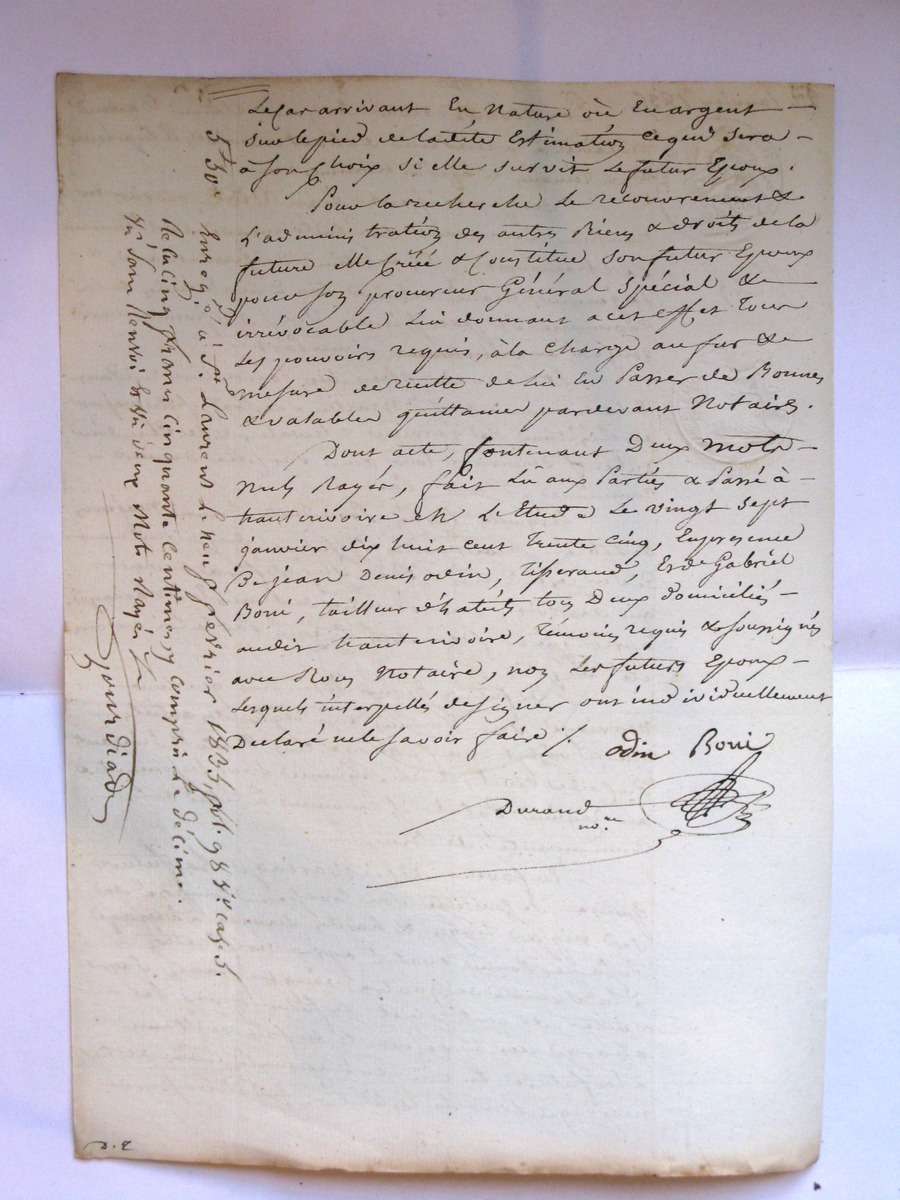 Le Cas arrivant En Nature où En argent
sur le pied de ladite Estimation ce qui sera
à son Choix si elle survit le futur Epoux.
Pour la recherche Le recouvrement &
L'administration des autres Biens & droits de la
future elle Créé & Constitue son futur Epoux
pour son procureur Général Spécial &
irrévocable Lui donnant a cet effet Tous
Les pouvoirs requis, à la Charge au fur &
mesure de recette de lui En Passer de Bonnes
& valables quittances pardevant Notaires.
Dont acte, Contenant Deux mots
Nuls Rayés, fait Lû aux Parties & Passé à
hauterivoire En L'Etude Le vingt Sept
janvier dix huit cent Trente Cinq, En presence
De jean Denis odin, Tisserand, Et de Gabriel
Boni, tailleur d'habits tous Deux domiciliés
audit hauterivoire, témoins requis & soussignés
avec Nous Notaire, non Les futurs Epoux
Lesquels interpellés de signer ont individuellement
Declaré ne le savoir faire ./.
odin Boni
Durand
no.re
5f 50c
Enregé à St Laurent Le neuf février 1835, fol. 98 Vo. Cas. 5.
Reçu Cinq francs Cinquante Centimes y compris Le décime.
vû sans Renvoi & vû deux Mots Rayés
D. 2